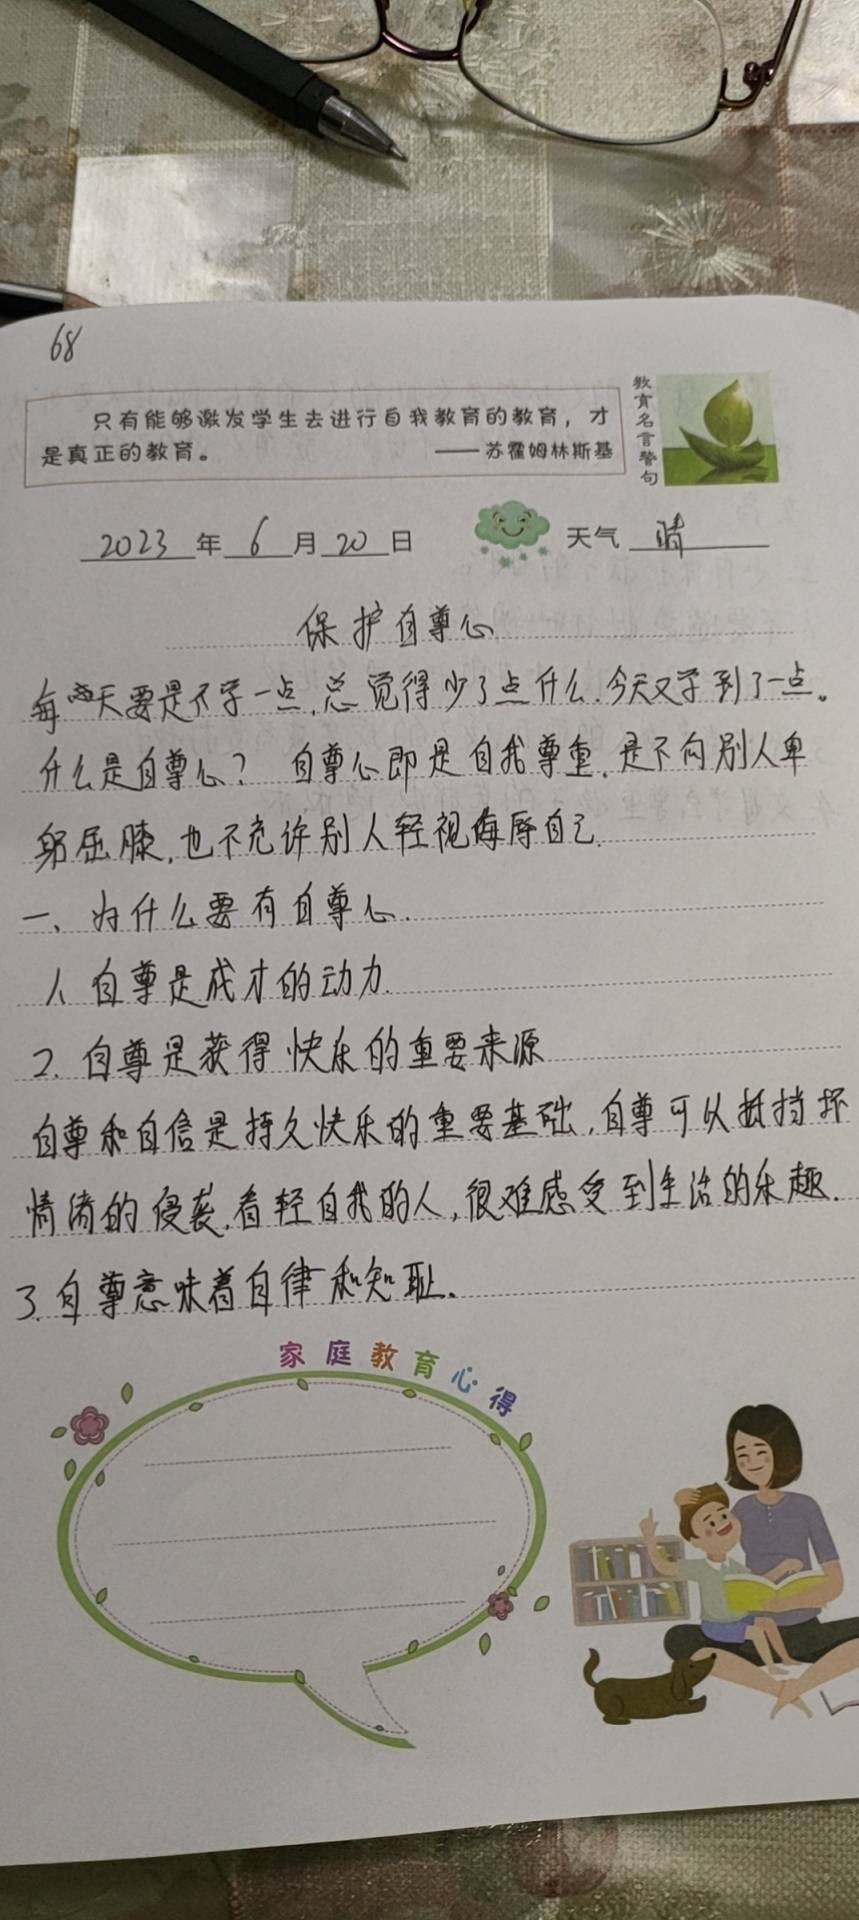 68
只有能够激发学生去进行自我教育的教育，才
是真正的教育。 ——苏霍姆林斯基
教育名言警句
2023年6月20日 天气 晴
保护自尊心
每天要是不学一点,总觉得少了点什么.今天又学到了一点。
什么是自尊心? 自尊心即是自我尊重,是不向别人卑
躬屈膝,也不允许别人轻视侮辱自己.
一、为什么要有自尊心.
1、自尊是成才的动力.
2、自尊是获得快乐的重要来源
自尊和自信是持久快乐的重要基础,自尊可以抵挡坏
情绪的侵袭,看轻自我的人,很难感受到生活的乐趣.
3.自尊意味着自律和知耻.
家庭教育心得